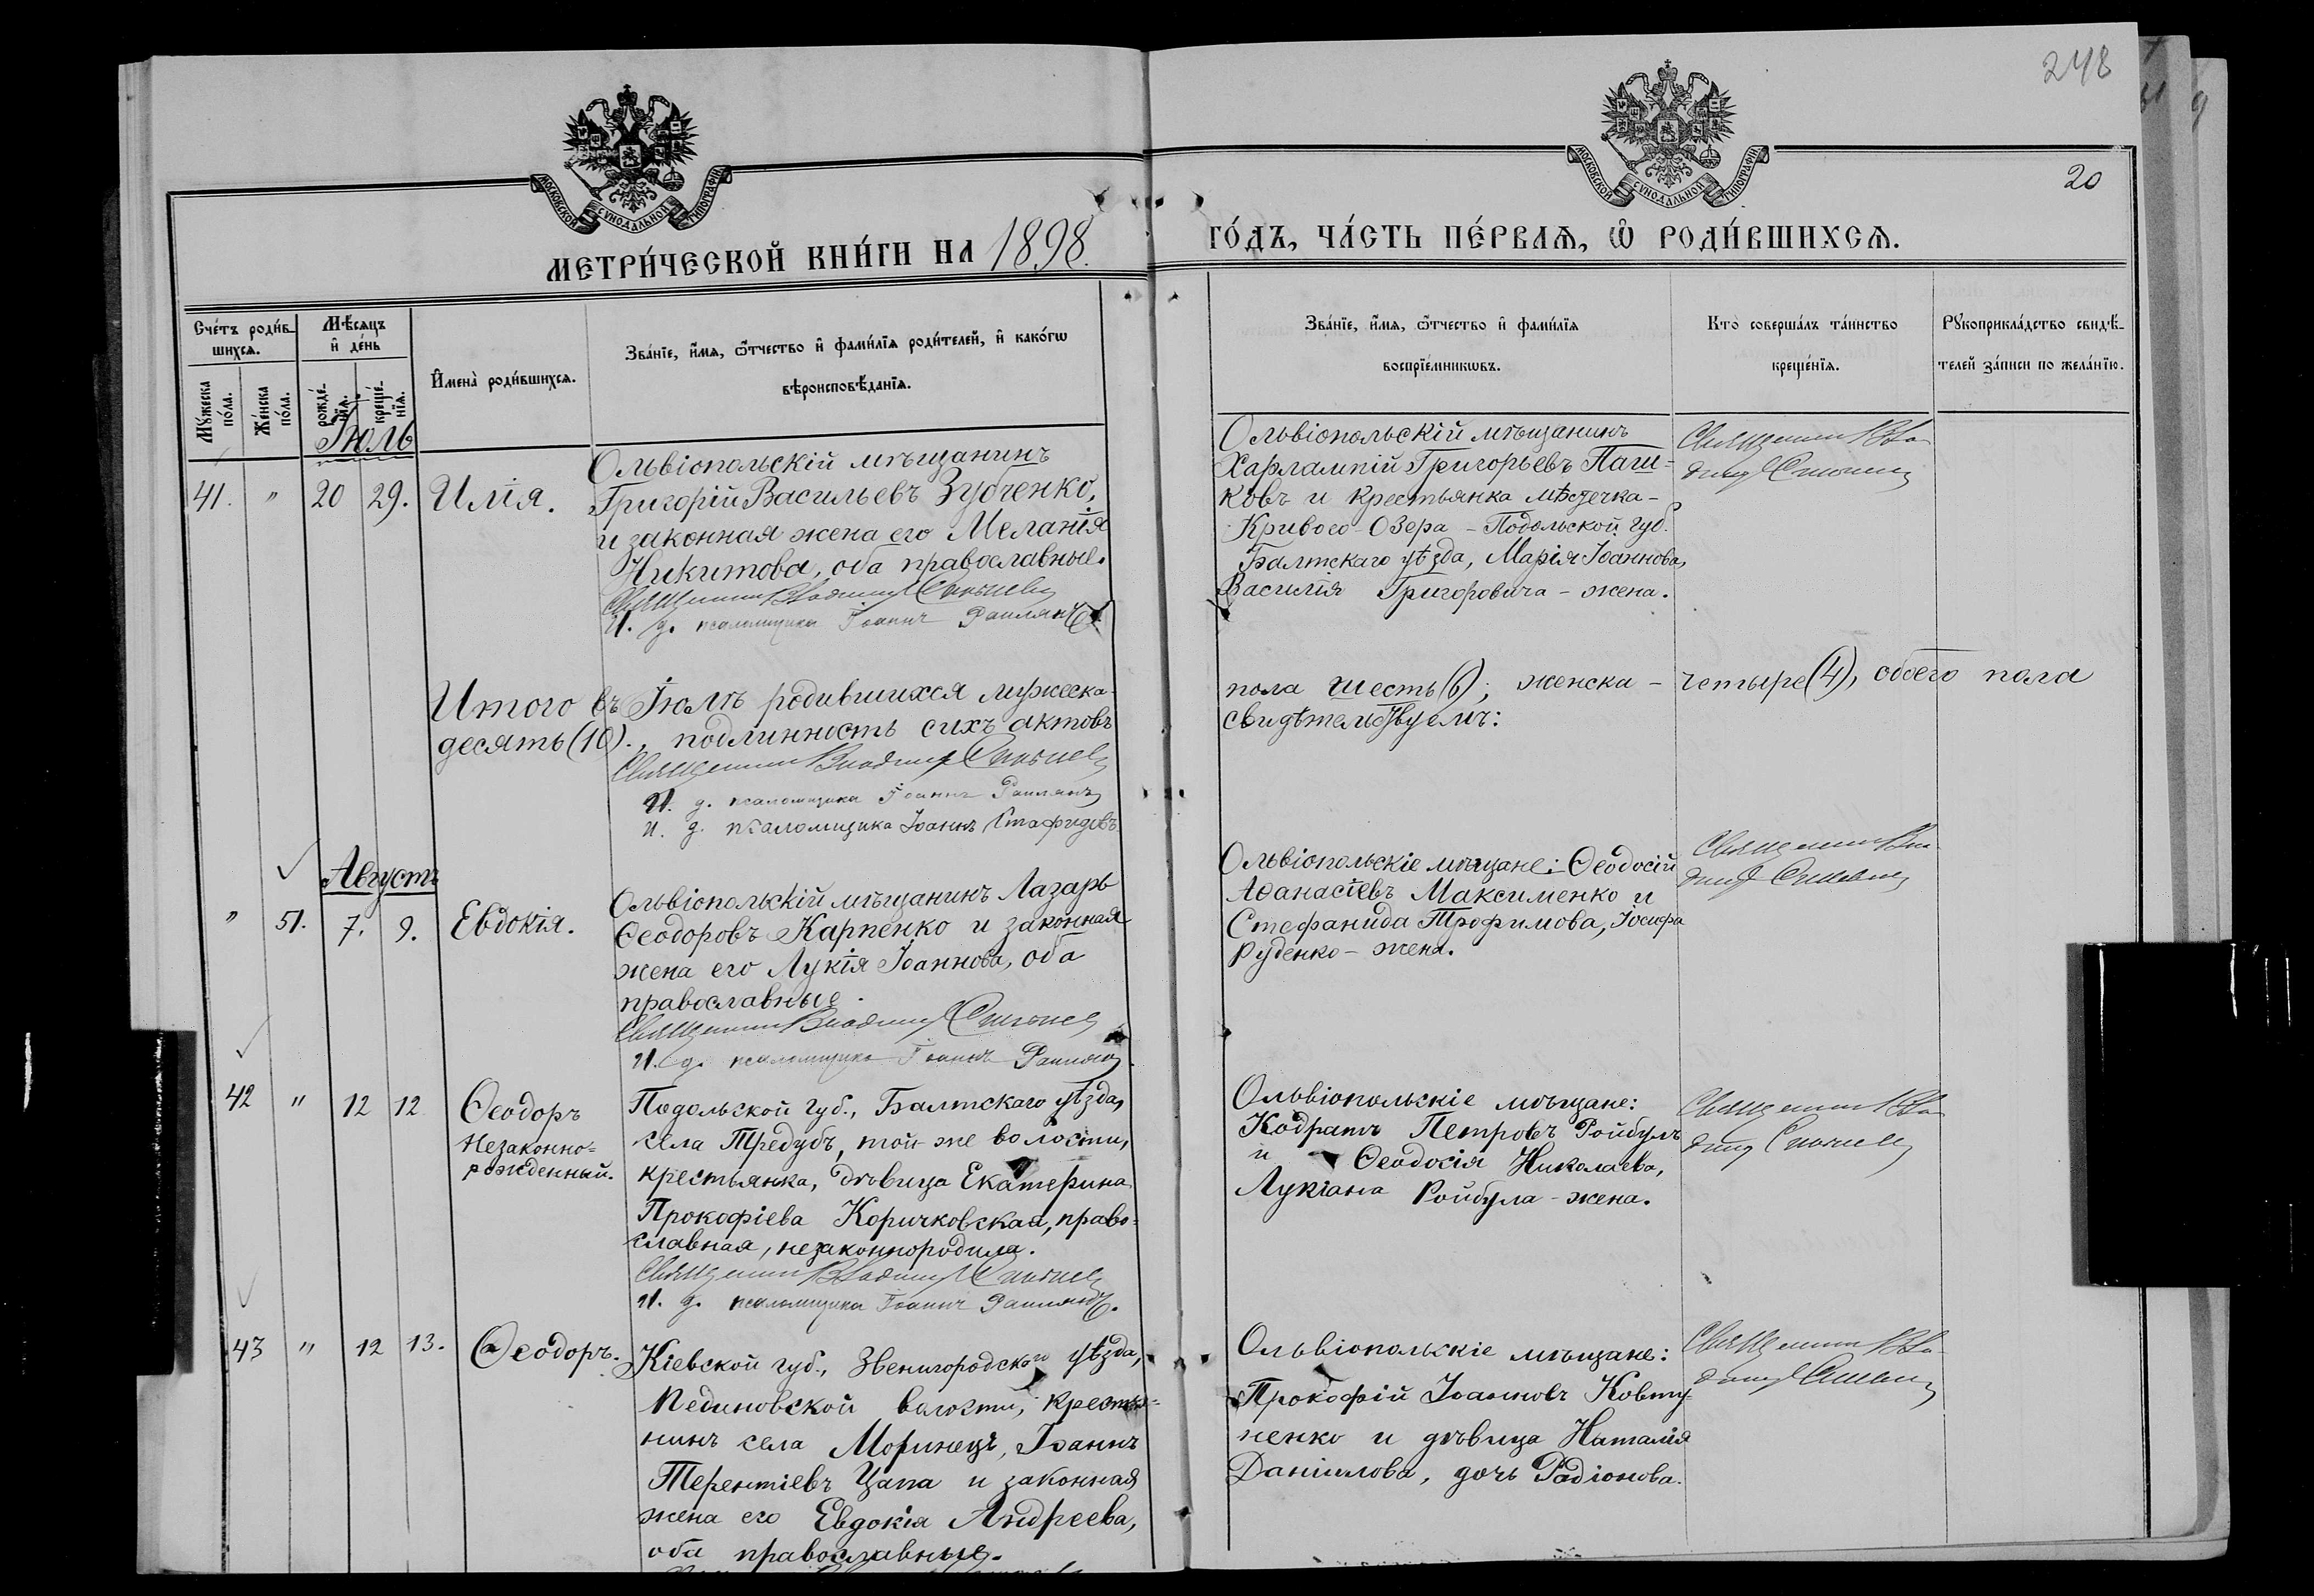 248
20
МОСКОВСКОЙ СѴНОДАЛЬНОЙ ТИПОГРАФІИ
МОСКОВСКОЙ СѴНОДАЛЬНОЙ ТИПОГРАФІИ
МЕТРИ́ЧЕСКОЙ КНИ́ГИ НА 1898.
ГО́ДЪ, ЧА́СТЬ ПЕ́РВАѦ, Ѡ҆ РОДИ́ВШИХСѦ.
Сче́тъ роди́в-
шихсѧ.
Мꙋ́жеска
по́ла.
Же́нска
по́ла.
Мѣ́сѧцъ
и҆ де́нь
рожде́-
нїѧ.
креще́-
нїѧ.
И҆мена̀ роди́вшихсѧ.
Зва́нїе, и҆́мѧ, ѻ҆́тчество и҆ фами́лїѧ роди́телей, и҆ како́гѡ
вѣроисповѣ́данїѧ.
Зва́нїе, и҆́мѧ, ѻ҆́тчество и҆ фами́лїѧ
воспрїе́мникѡвъ.
Кто̀ соверша́лъ та́инство
креще́нїѧ.
Рꙋкоприкла́дство свидѣ́-
телей за́писи по жела́нїю.
Іюль
41. " 20 29. Илія.
Ольвіопольскій мѣщанинъ
Григорій Васильевъ Зубченко,
и законная жена его Меланія
Никитова, оба православные.
Священникъ Владимиръ
И. д. псаломщика Іоаннъ
Ольвіопольскій мѣщанинъ
Харлампій Григорьевъ Паш-
ковъ и крестьянка мѣстечка-
Кривого-Озера-Подольской губ.
Балтскаго уѣзда, Марія Іоаннова,
Василія Григоровича-жена.
Священникъ Вла-
димиръ
Итого въ Іюлѣ родившихся мужеска-
пола шесть (6); женска - четыре (4), обоего пола
десять (10)., подлинность сихъ актовъ
свидѣтельствуемъ:
Священникъ Владимиръ
И. д. псаломщика Іоаннъ
И. д. псаломщика Іоаннъ Стафидовъ
Августъ
" 51. 7. 9. Евдокія.
Ольвіопольскій мѣщанинъ Лазарь
Ѳеодоровъ Карпенко и законная
жена его Лукія Іоаннова, оба
православные.
Священникъ Владимиръ
И. д. псаломщика Іоаннъ
Ольвіопольскіе мѣщане: Ѳеодосій
Аѳанасіевъ Максименко и
Стефанида Трофимова, Іосифа
Руденко-жена.
Священникъ Вла-
димиръ
42 " 12 12 Ѳеодоръ
Незаконно=
рожденный.
Подольской губ., Балтскаго уѣзда,
села Тредубъ, той же волости,
крестьянка, дѣвица Екатерина
Прокофіева Коричковская, право=
славная, незаконнородила.
Священникъ Владимиръ
И. д. псаломщика Іоаннъ
Ольвіопольскіе мѣщане:
Кодратъ Петровъ Ройбулъ
и Ѳеодосія Николаева,
Лукіана Ройбула-жена.
Священникъ Вла-
димиръ
43 " 12 13. Ѳеодоръ.
Кіевской губ., Звенигородского уѣзда,
Пединовской волости, крестья=
нинъ села Моринецъ, Іоаннъ
Терентіевъ Цапа и законная
жена его Евдокія Андреева,
оба православные.
Ольвіопольскіе мѣщане:
Прокофій Іоанновъ Ковту-
ненко и дѣвица Наталія
Даніилова, дочь Радіонова.
Священникъ Вла-
димиръ